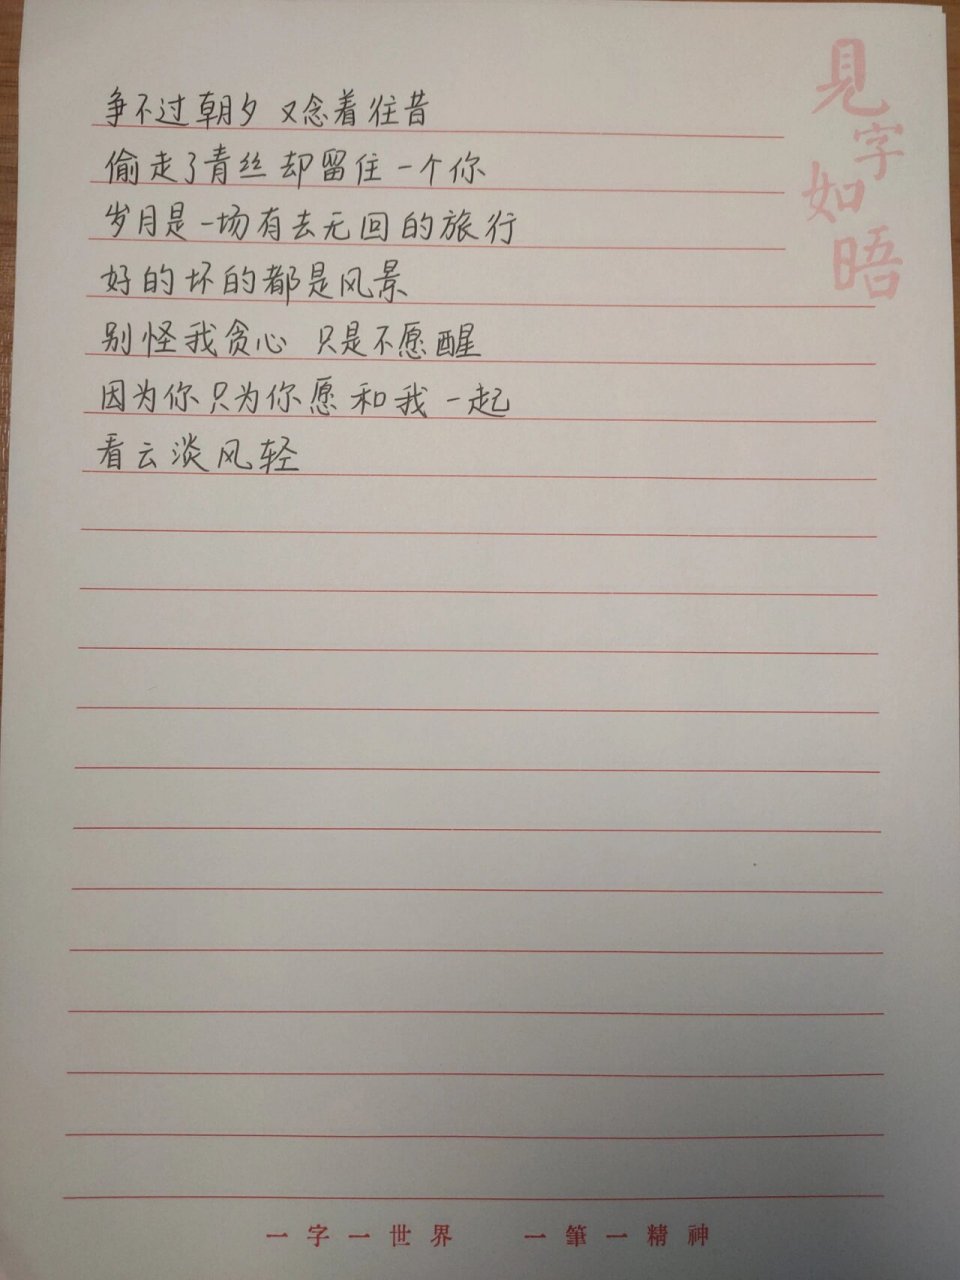 見字如晤
争不过朝夕 又念着往昔
偷走了青丝却留住一个你
岁月是一场有去无回的旅行
好的坏的都是风景
别怪我贪心 只是不愿醒
因为你只为你愿和我一起
看云淡风轻
一字一世界 一筆一精神